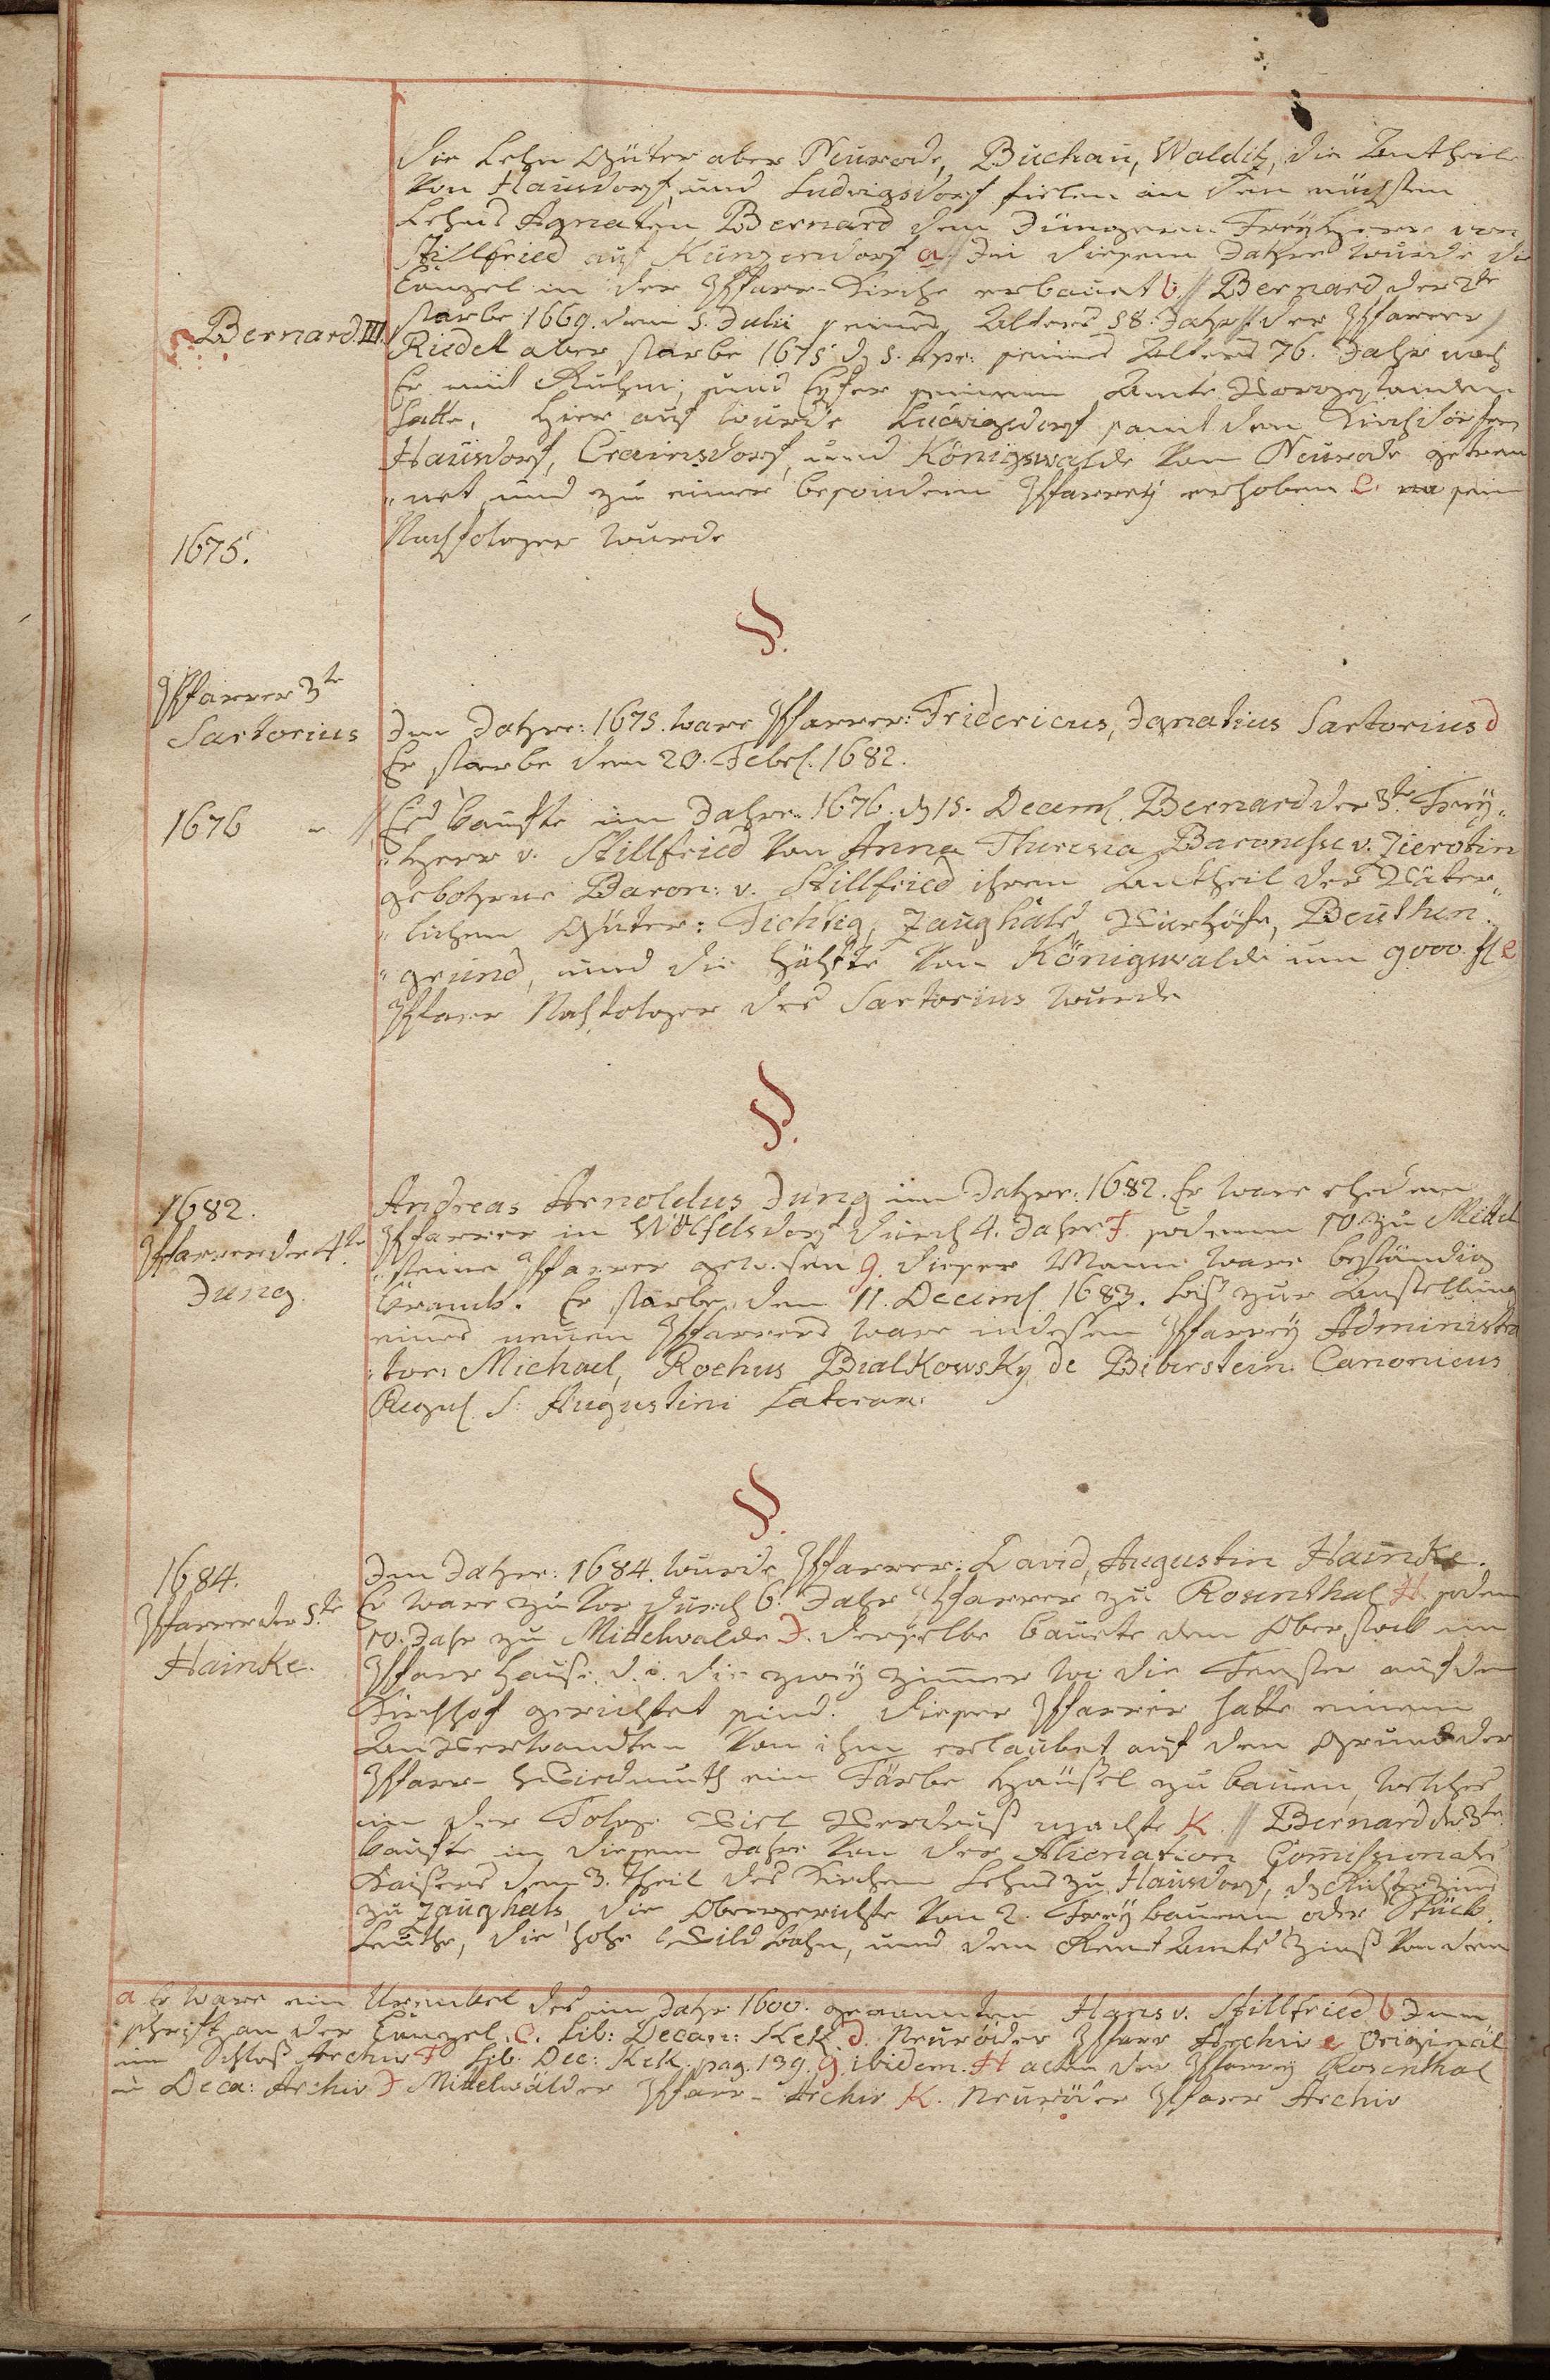 die Lehn Güter aber Neurode, Buchau, Walditz, die Antheile
von Hausdorf, und Ludwigsdorf fielen an den nächsten
Lehns Agnaten Bernard den Jüngern Freyherrn von
Stillfried auf Kunzendorf a // In diesem Jahre wurde die
Canzel in der Pfarr-Kirche erbauet b // Bernard der 2te
Bernard. III.
starbe 1669. den 5. Julii seines Alters 58. Jahr // der Pfarrer
Rudell aber starbe 1675 d. 5. Apr: seines Alters 76. Jahr nach
Er mit Ruhm, und Eyfer seinem Amte Vorgestanden
hatte. Hier auf wurde Ludwigsdorf samt den Kirchdörfern
Hausdorf, Crainsdorf, und Königswalde von Neurode getren
„net, und zu einer besondern Pfarrey erhoben c sein
1675.
Nachfolger wurde
§.
Pfarrer 3te
Sartorius
Im Jahre: 1675. ware Pfarrer: Fridericus, Ignatius Sartorius d
Er starbe den 20. Febr. 1682.
1676 //
Es kaufte im Jahre 1676. d. 15. Decemb. Bernard der 3te Frey„
„herr v. Stillfried von Anna Theresia Baronesse v. Zierotin
gebohrne Baron: v. Stillfried ihren Antheil der Väter„
„lichen Güter: Fichtig, Zaughals, Vierhöfe, Beuthen„
„grund, und die Hälfte von Königswalde um 9000. fl e
Pfarr Nachfolger des Sartorius wurde
§.
1682.
Pfarrer der 4te
Jung.
Andreas Arnoldus Jung im Jahre: 1682. Er ware ehedem
Pfarrer in Wölfelsdorf durch 4. Jahr F. sodenn 10. zu Mittel
„steine Pfarrer gewesen g. dieser Mann ware beständig
krank. Er starbe den 11. Decemb. 1683. bis zur Anstellung
eines neuen Pfarrers ware indessen Pfarrey Administra
„tor: Michael, Rochus Bialkowsky de Biberstein. Canonicus
Regul. S: Augustini Lateran:
§.
1684.
Pfarrer der 5te
Hainke.
Im Jahre: 1684. wurde Pfarrer: David, Augustin Hainke.
Er ware zu Vor durch 6. Jahr Pfarrer zu Rosenthal H. sodenn
10. Jahr zu Mittelwalde J. derselbe bauete den Oberstock im
Pfarr Hause: d. i. die zwey Zimmer wo die Fenster auf den
Kirchhof gerichtet sind. dieser Pfarrer hatte einem
Anverwandten von ihm erlaubet auf den Grund der
Pfarr-Wiedmuth ein Färbe Häusel zu bauen, welches
in der Folge Viel Verdruß machte K. // Bernard der 3te
kaufte in diesem Jahre von der Alienation Commissionats
Kaisers den 3. Theil des Kirchen Lehns zu Hausdorf, d. Richterzins
zu Zaughals, die Obergerichte von 2. Freybauern oder Stück
Leuthe, die hohe Wildbahn, und den Rent Amts Zinß von den
a Er ware ein Urenkel des im Jahr 1600. genannten Hans v. Stillfried b Inn
schrift an der Canzel. c. Lib: Decan: Kek d. Neuröder Pfarr Archiv e Original
im Schloß Archiv F Lib. Dec: Kek. pag. 139. g. ibidem. H acten der Pfarrey Rosenthal
u Deca: Archiv J Mittelwälder Pfarr-Archiv K. Neuröder Pfarr Archiv